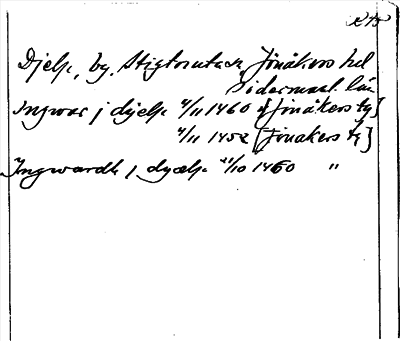 Djelp, by. Stigtomta sn Jönåkers hd
Södermanl. län
Ingwar j dyelp 4/11 1460 [Jönåkers tg]
4/11 1452 [Jönåkers tg]
Jngwardh j dyælp 21/10 1460 "